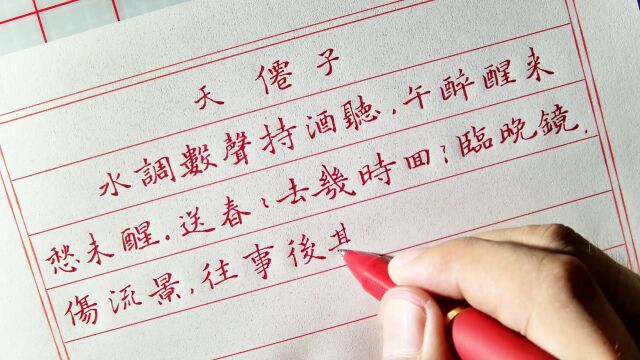 天僊子
水調數聲持酒聽,午醉醒來
愁未醒.送春〻去幾時囬?臨晚鏡.
傷流景,往事後其